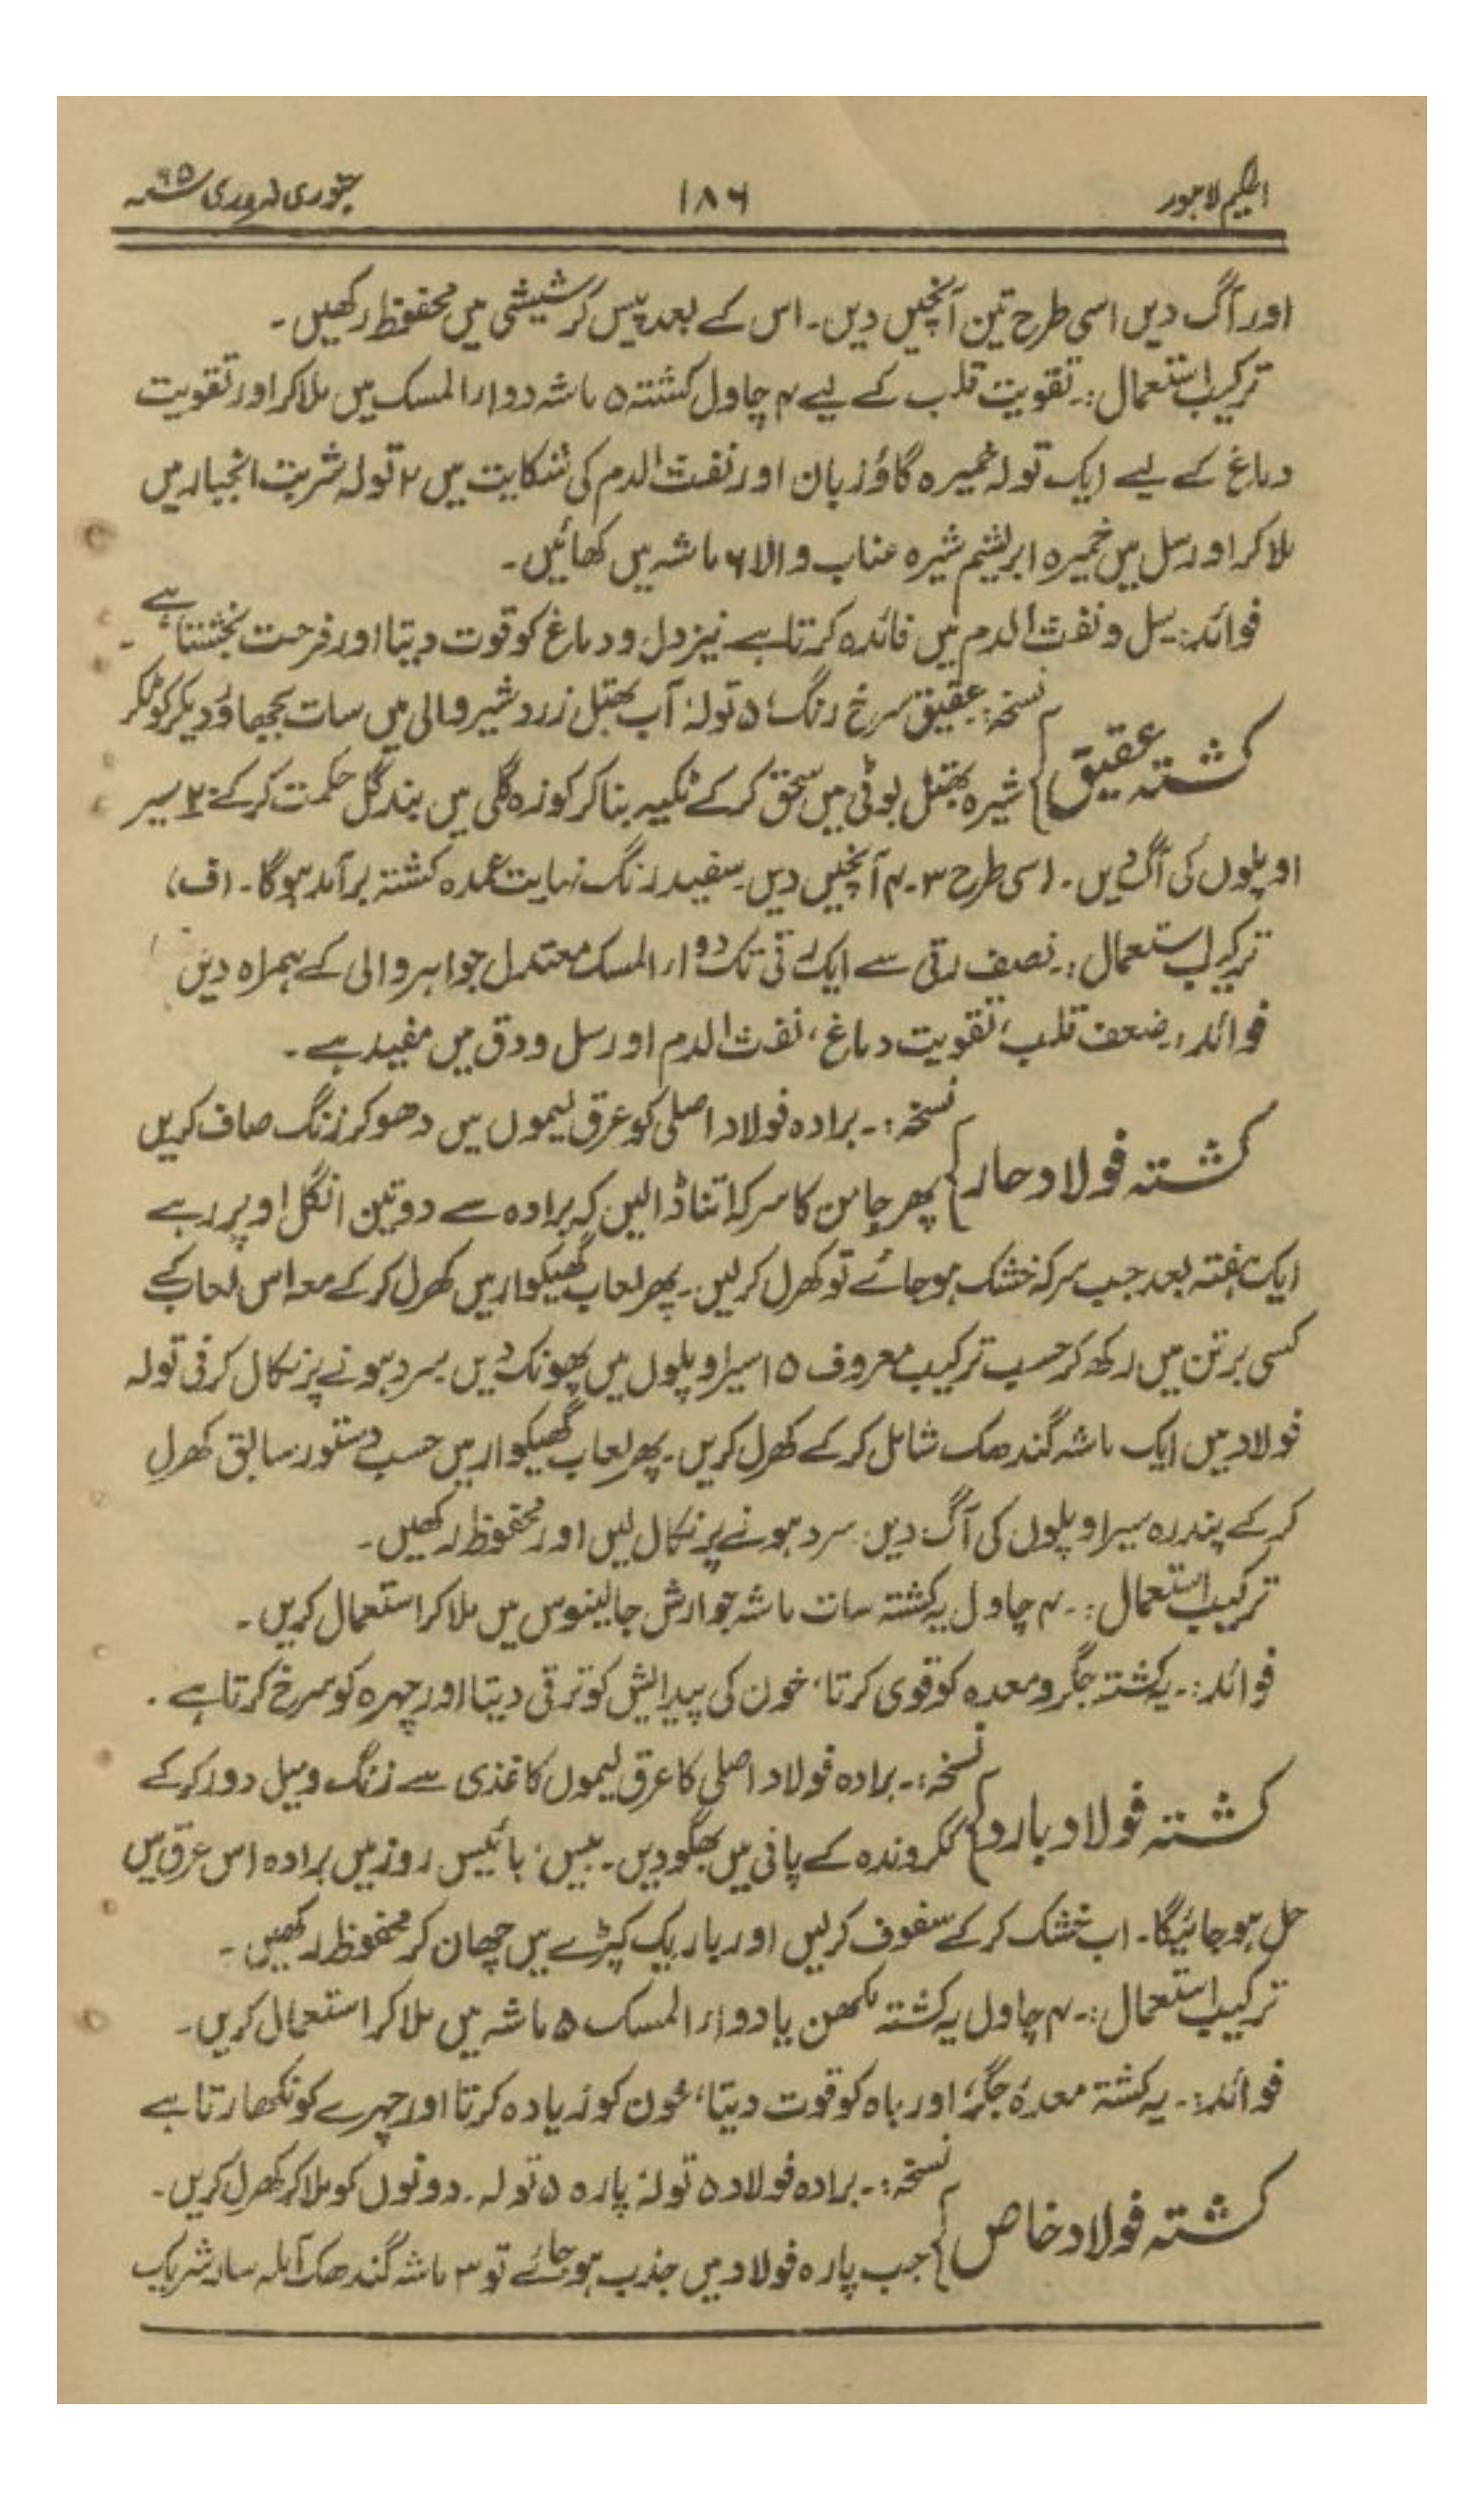 الحکیم لاہور
۱۸۶
جنوری فروری ۹۵ء
اور آگ دیں اسی طرح تین آنچیں دیں۔ اس کے بعد پیس کر شیشی میں محفوظ رکھیں۔
ترکیب استعمال:۔ تقویت قلب کے لیے ۴ چاول کشتہ ۵ ماشہ دواء المسک میں ملا کر اور تقویت
دماغ کے لیے ایک تولہ خمیرہ گاؤزبان اور نفث الدم کی شکایت میں ۲ تولہ شربت انجبار میں
ملا کر اور سل میں خمیرہ ابریشم شیرہ عناب والا ۶ ماشہ میں کھائیں۔
فوائد:۔ سل و نفث الدم میں فائدہ کرتا ہے نیز دل و دماغ کو قوت دیتا اور فرحت بخشتا ہے۔
کشتہ عقیق
نسخہ:۔ عقیق سرخ رنگ ۵ تولہ، آب بھتل زرد شیر والی میں سات بجھاؤ دیکر کوٹکر
شیرہ بھتل بوٹی میں سحق کر کے ٹکیہ بنا کر کوزہ گلی میں بند گل حکمت کر کے ۲۰ سیر
اوپلوں کی آگ دیں۔ اسی طرح ۳۔۴ آنچیں دیں۔ سفید رنگ نہایت عمدہ کشتہ برآمد ہوگا۔ (ف)
ترکیب استعمال:۔ نصف رتی سے ایک رتی تک دواء المسک معتدل جواہر والی کے ہمراہ دیں
فوائد:۔ ضعف قلب، تقویت دماغ، نفث الدم اور سل و دق میں مفید ہے۔
کشتہ فولاد حار
نسخہ:۔ برادہ فولاد اصلی کو عرق لیموں میں دھو کر زنگ صاف کریں
پھر جامن کا سرکہ اتنا ڈالیں کہ برادہ سے دو تین انگل اوپر رہے
ایک ہفتہ بعد جب سرکہ خشک ہو جائے تو کھرل کر لیں۔ پھر لعاب گھیکوار میں کھرل کر کے معہ اس لعاب کے
کسی برتن میں رکھ کر حسب ترکیب معروف ۱۵ سیر اوپلوں میں پھونک دیں۔ سرد ہونے پر نکال کر فی تولہ
فولاد میں ایک ماشہ گندھک شامل کر کے کھرل کریں۔ پھر لعاب گھیکوار میں حسب دستور سابق کھرل
کر کے پندرہ سیر اوپلوں کی آگ دیں۔ سرد ہونے پر نکال لیں اور محفوظ رکھیں۔
ترکیب استعمال:۔ ۴ چاول یہ کشتہ سات ماشہ جوارش جالینوس میں ملا کر استعمال کریں۔
فوائد:۔ یہ کشتہ جگر و معدہ کو قوی کرتا، خون کی پیدائش کو ترقی دیتا اور چہرہ کو سرخ کرتا ہے۔
کشتہ فولاد بارد
نسخہ:۔ برادہ فولاد اصلی کا عرق لیموں کاغذی سے زنگ و میل دور کر کے
ککروندہ کے پانی میں بھگو دیں۔ بیس، بائیس روز میں برادہ اس عرق میں
حل ہو جائیگا۔ اب خشک کر کے سفوف کر لیں اور باریک کپڑے میں چھان کر محفوظ رکھیں۔
ترکیب استعمال:۔ ۴ چاول یہ کشتہ مکھن یا دواء المسک ۵ ماشہ میں ملا کر استعمال کریں۔
فوائد:۔ یہ کشتہ معدہ، جگر، اور باہ کو قوت دیتا، خون کو زیادہ کرتا اور چہرے کو نکھارتا ہے
کشتہ فولاد خاص
نسخہ:۔ برادہ فولاد ۵ تولہ، پارہ ۵ تولہ۔ دونوں کو ملا کر کھرل کریں۔
جب پارہ فولاد میں جذب ہو جائے تو ۳ ماشہ گندھک آملہ سار شریک